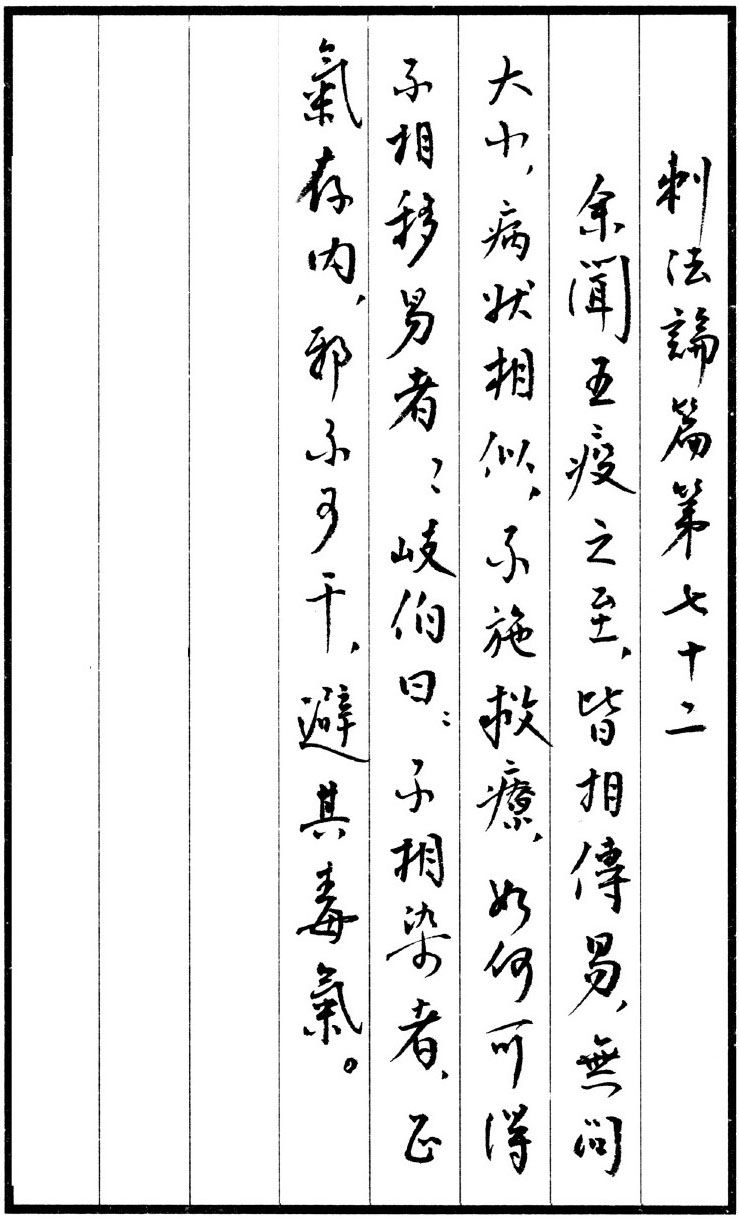 刺法論篇第七十二
余聞五疫之至，皆相傳易，無問
大小，病狀相似，不施救療，如何可得
不相移易者？岐伯曰：不相染者，正
氣存内，邪不可干，避其毒氣。